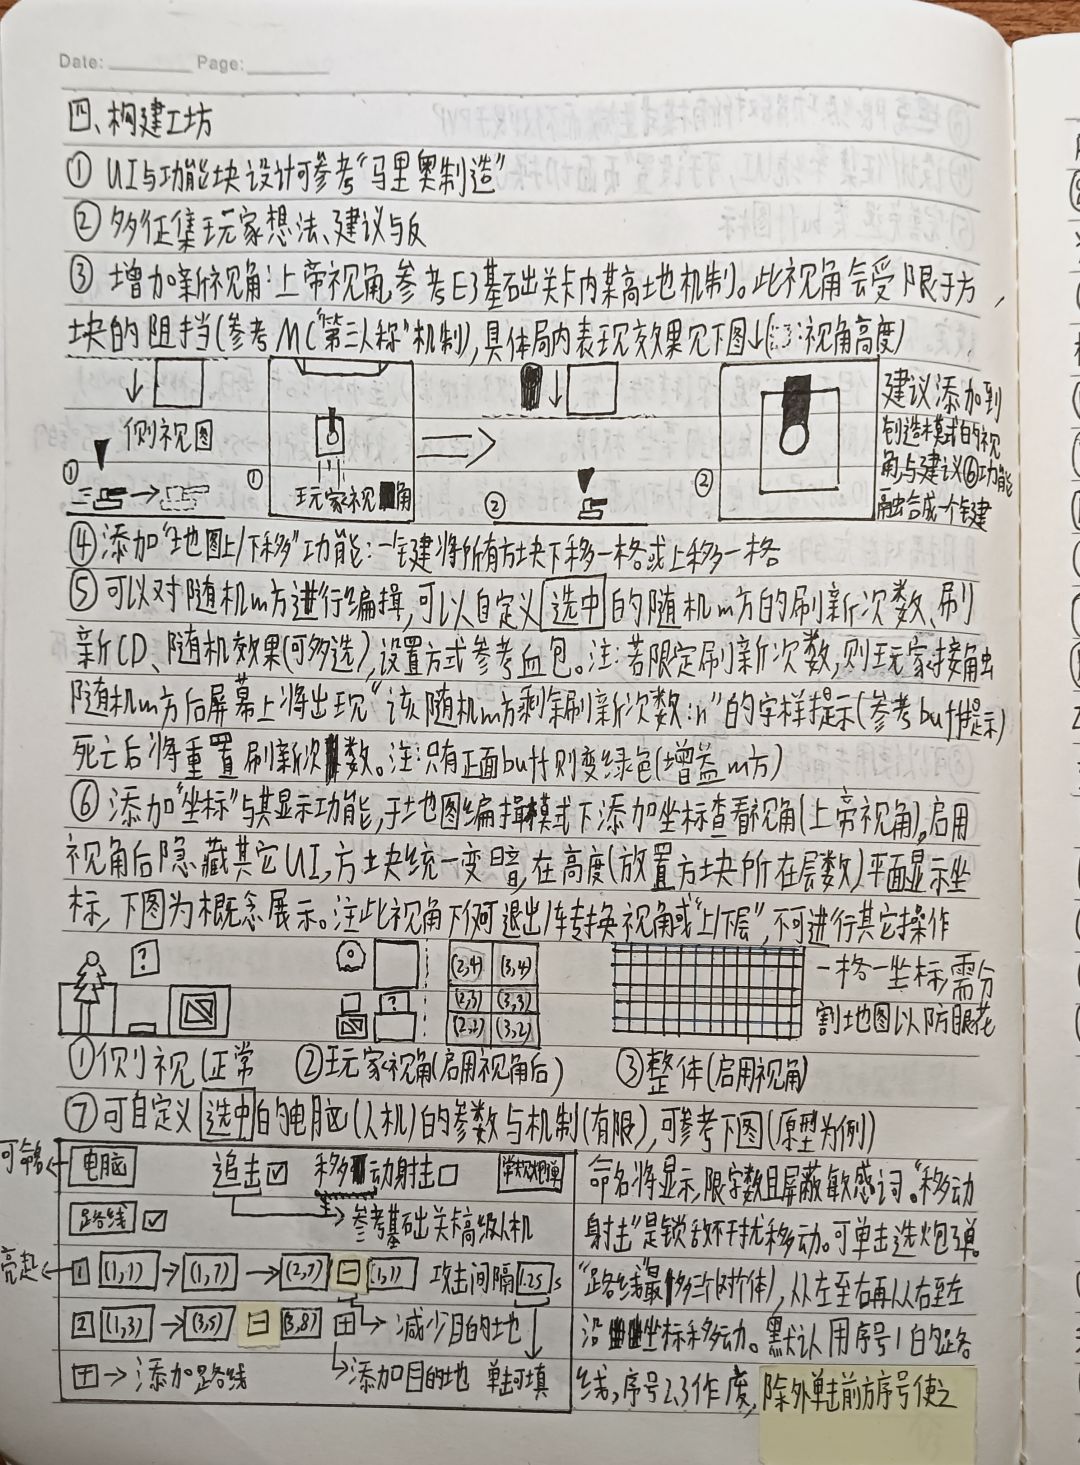 Date: Page:
四、构建工坊
① UI与功能块设计可参考"马里奥制造"
② 多征集玩家想法、建议与反
③ 增加新视角:上帝视角,参考E3基础出关卡内某高地机制。此视角会受限于方
块的阻挡(参考MC"第三人称"机制),具体局内表现效果见下图↓( :视角高度)
侧视图
① ①
玩家视角
② ②
建议添加到
创造模式的视
角与建议⑥功能
融合成一个键
④ 添加"地图上/下移"功能:一键将所有方块下移一格或上移一格
⑤ 可以对随机m方进行编辑,可以自定义选中的随机m方的刷新次数、刷
新CD、随机效果(可多选),设置方式参考血包。注:若限定刷新次数,则玩家接触
随机m方后屏幕上将出现"该随机m方剩余刷新次数:n"的字样提示(参考buff提示)
死亡后将重置刷新次数。注:只有正面buff则变绿色(增益m方)
⑥ 添加"坐标"与其显示功能,于地图编辑模式下添加坐标查看视角(上帝视角)。启用
视角后隐藏其它UI,方块统一变暗,在高度(放置方块所在层数)平面显示坐
标,下图为概念展示。注此视角下仅可退出/转换视角或"上/下层",不可进行其它操作
?
?
(2,4) (3,4)
(2,3) (3,3)
(2,2) (3,2)
一格一坐标,需分
割地图以防眼花
①侧视(正常 ②玩家视角(启用视角后) ③整体(启用视角)
⑦可自定义选中的电脑(人机)的参数与机制(有限),可参考下图(原型为例)
可命名← 电脑 追击☑ 移动射击□ 常规炮弹
路线 ☑ →参考基础关卡高级人机
亮起← 1 (1,1)→(1,7)→(2,7) − (1,1) 攻击间隔1.25s
2 (1,3)→(3,5) − (3,8) + →减少目的地
+→添加路线 →添加目的地 单击可填
命名将显示,限字数且屏蔽敏感词。"移动
射击"是锁敌不干扰移动。可单击选炮弹。
"路线"最多三个(对个体),从左至右再从右至左
沿坐标移动。默认用序号1的路
线,序号2.3作废,除外单击前方序号使之